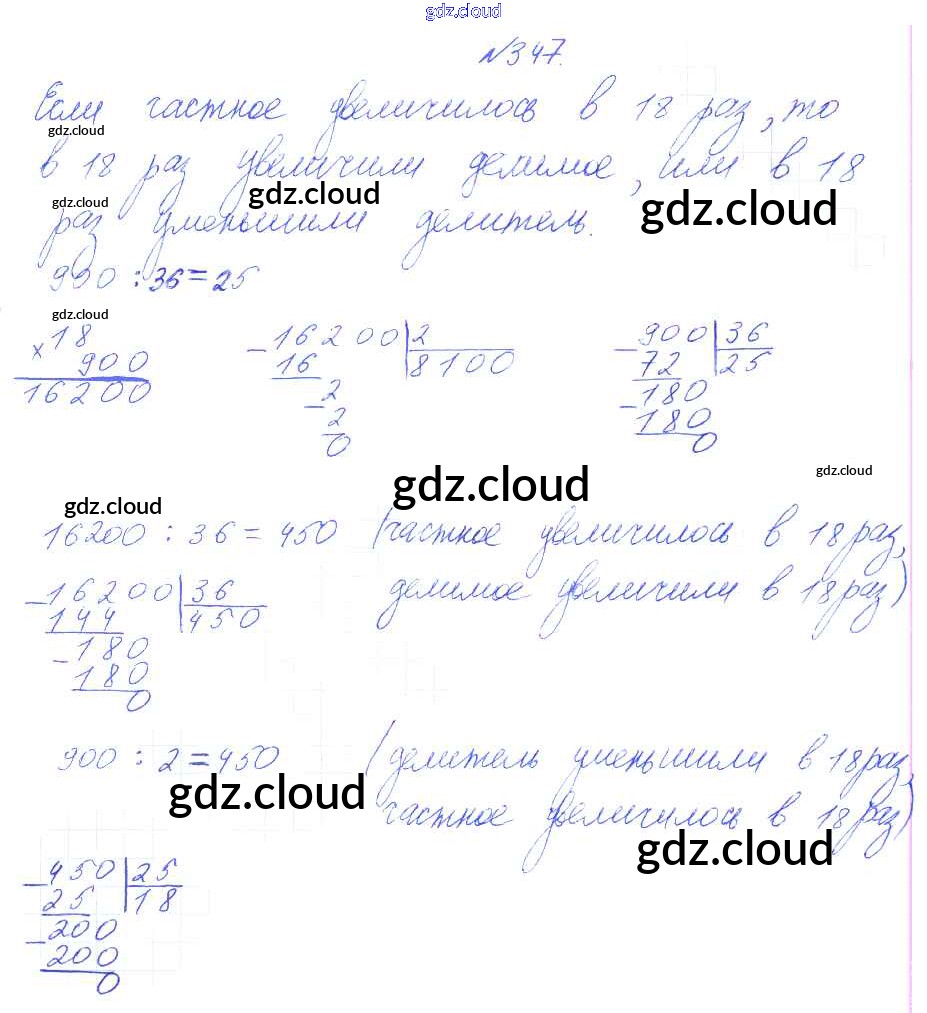 gdz.cloud
№347.
Если частное увеличилось в 18 раз, то
gdz.cloud
в 18 раз увеличили делимое, или в 18
gdz.cloud gdz.cloud gdz.cloud
раз уменьшили делитель.
900 : 36 = 25
gdz.cloud
× 18
900
16200
− 16200 | 2
16 | 8100
− 2
2
0
− 900 | 36
72 | 25
− 180
180
0
gdz.cloud gdz.cloud
gdz.cloud
16200 : 36 = 450 (частное увеличилось в 18 раз,
делимое увеличили в 18 раз)
− 16200 | 36
144 | 450
− 180
180
0
900 : 2 = 450 (делитель уменьшили в 18 раз,
gdz.cloud
частное увеличилось в 18 раз)
gdz.cloud
− 450 | 25
25 | 18
− 200
200
0